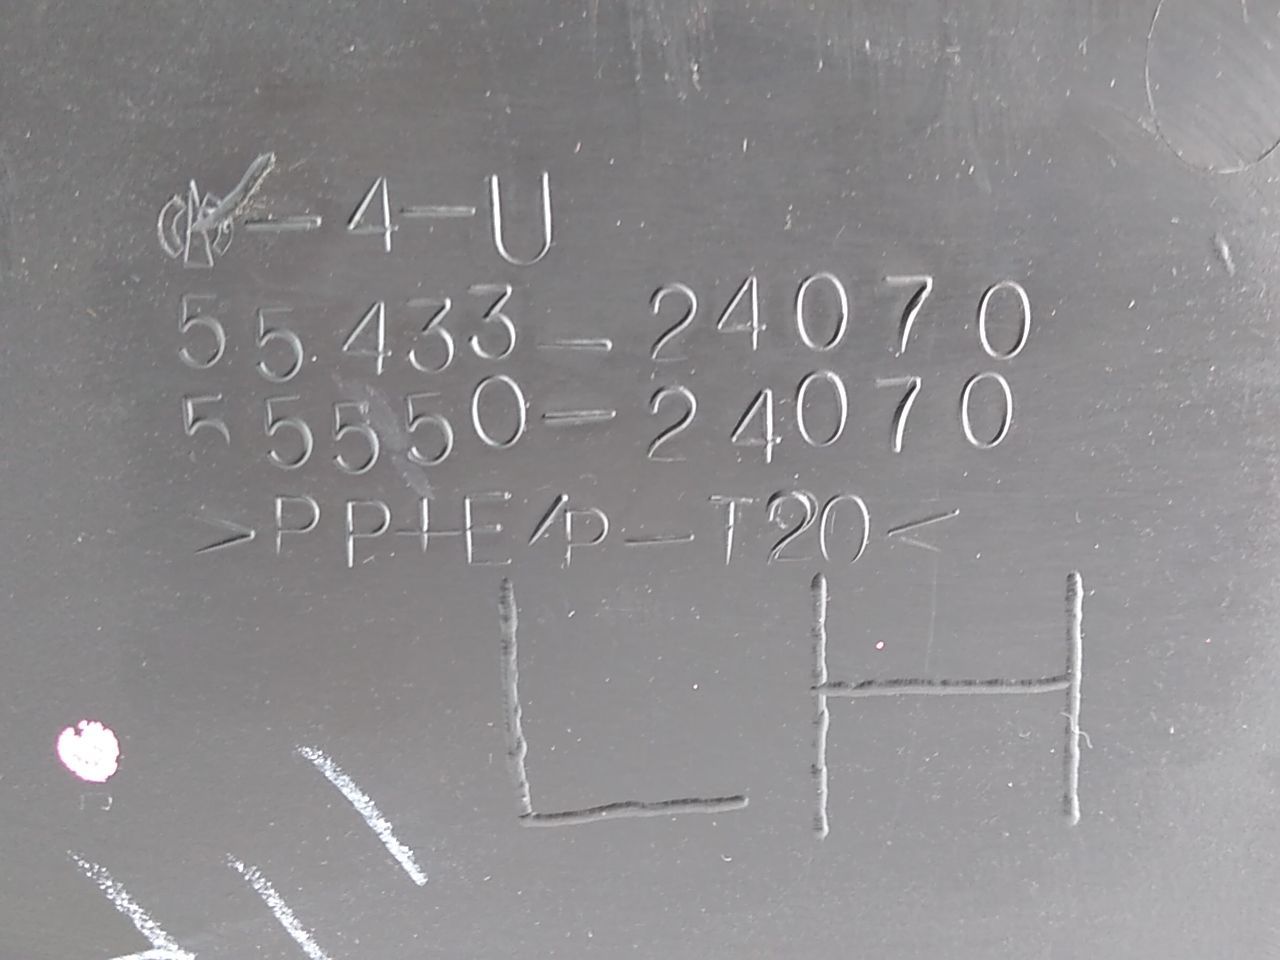 -4-U
55433-24070
55550-24070
>PP+E/P-T20<
LH